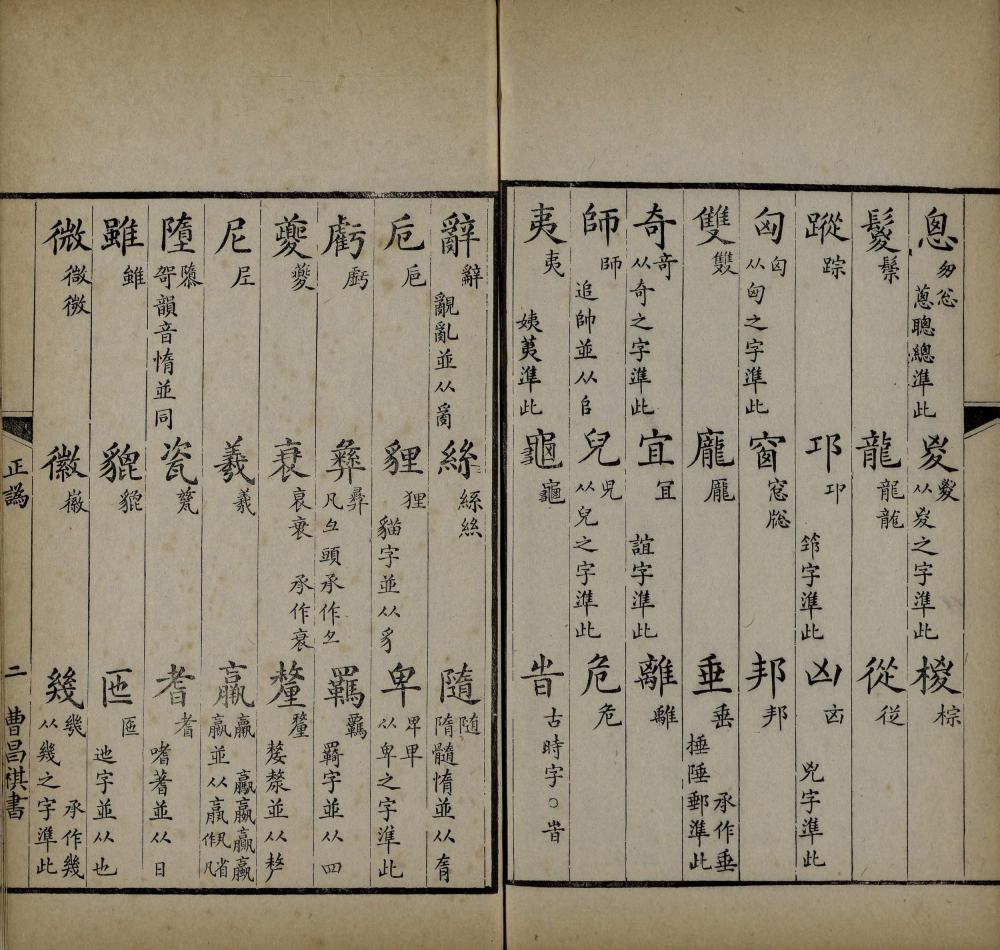 悤 匆 忩 蔥聰總準此 㚇 㚇 从㚇之字準此 椶 棕
鬉 鬃 龍 龍 龍 從 従
蹤 踪 邛 卭 筇字準此 凶 㐫 兇字準此
匈 匃 从匈之字準此 窗 窓 牎 邦 邦
雙 䨇 龐 龎 垂 垂 捶陲郵準此 承作垂
奇 竒 从奇之字準此 宜 冝 誼字準此 離 離
師 師 追帥並从𠂤 兒 児 从兒之字準此 危 危
夷 夷 姨荑準此 龜 龜 旹 古時字○旹
辭 辝 覶亂並从𤔔 絲 絲 絲 隨 随 隋髓惰並从育
卮 巵 貍 狸 貓字並从豸 卑 𤰞 甲 从卑之字準此
虧 虧 彝 彛 凡彑頭承作彑 羈 覊 羇字並从四
夔 夔 衰 衰 衰 承作衰 釐 釐 嫠漦並从𠩺
尼 尼 羲 羲 羸 羸 羸 羸 羸 羸 羸並从𣎆作凡省
墮 隳 哿韻音惰並同 瓷 甆 耆 耆 嗜蓍並从日
雖 雖 貔 豼 匜 匜 迆字並从也
微 㣲 微 徽 徽 幾 㡬 从幾之字準此 承作幾
正譌 二 曹昌祺書